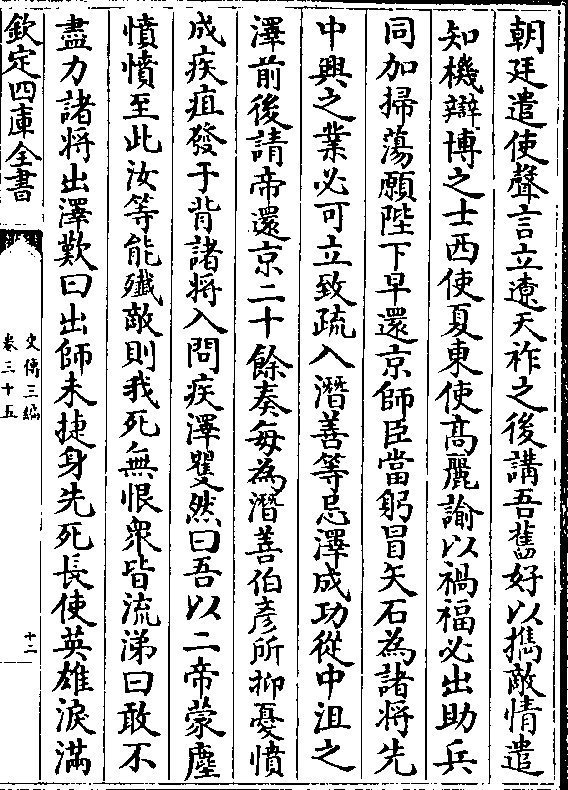 朝廷遣使聲言立遼天祚之後講吾舊好以攜敵情遣
知機辯博之士西使夏東使髙麗諭以禍福必出助兵
同加掃蕩願陛下早還京師臣當躬冒矢石為諸將先
中興之業必可立致疏入潛善等忌澤成功從中沮之
澤前後請帝還京二十餘奏每為潛善伯彥所抑憂憤
成疾疽發于背諸將入問疾澤矍然曰吾以二帝蒙塵
憤憤至此汝等能殲敵則我死無恨衆皆流涕曰敢不
盡力諸將出澤歎曰出師未捷身先死長使英雄淚滿
欽定四庫全書
史傳三編
卷三十五
十二